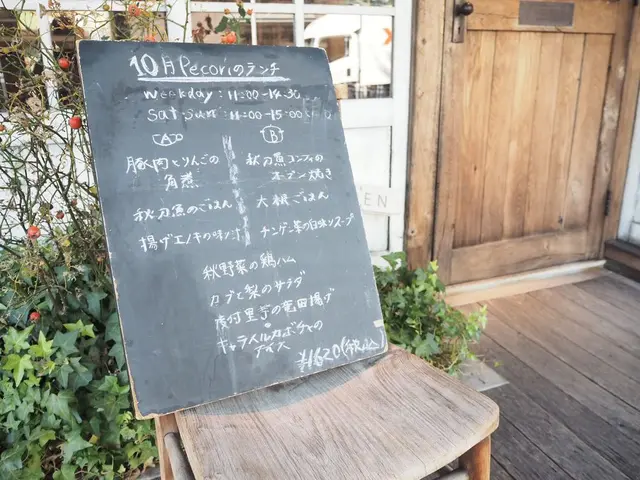 10月 Pecoriのランチ
weekday : 11:00-14:30
Sat・sun : 11:00-15:00
A
B
豚肉とりんごの
角煮
秋刀魚のごはん
揚げエノキの味噌汁
秋刀魚コンフィの
オーブン焼き
大根ごはん
チンゲン菜の白味噌スープ
秋野菜の鶏ハム
カブと梨のサラダ
里芋の竜田揚げ
キャラメルカボチャの
アイス
¥1620(税込)
EN